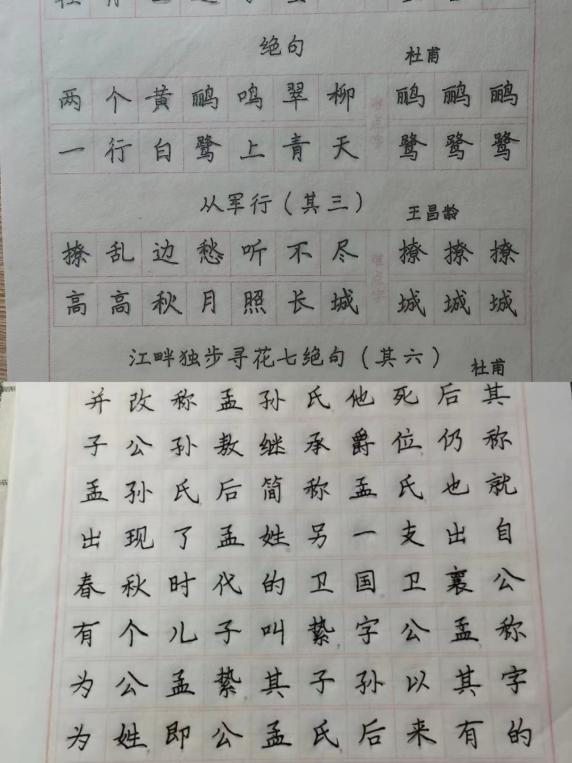 绝句 杜甫
两个黄鹂鸣翠柳 难点字 鹂鹂鹂
一行白鹭上青天 鹭鹭鹭
从军行（其三） 王昌龄
撩乱边愁听不尽 难点字 撩撩撩
高高秋月照长城 城城城
江畔独步寻花七绝句（其六） 杜甫
并改称孟孙氏他死后其
子公孙敖继承爵位仍称
孟孙氏后简称孟氏也就
出现了孟姓另一支出自
春秋时代的卫国卫襄公
有个儿子叫絷字公孟称
为公孟絷其子孙以其字
为姓即公孟氏后来有的